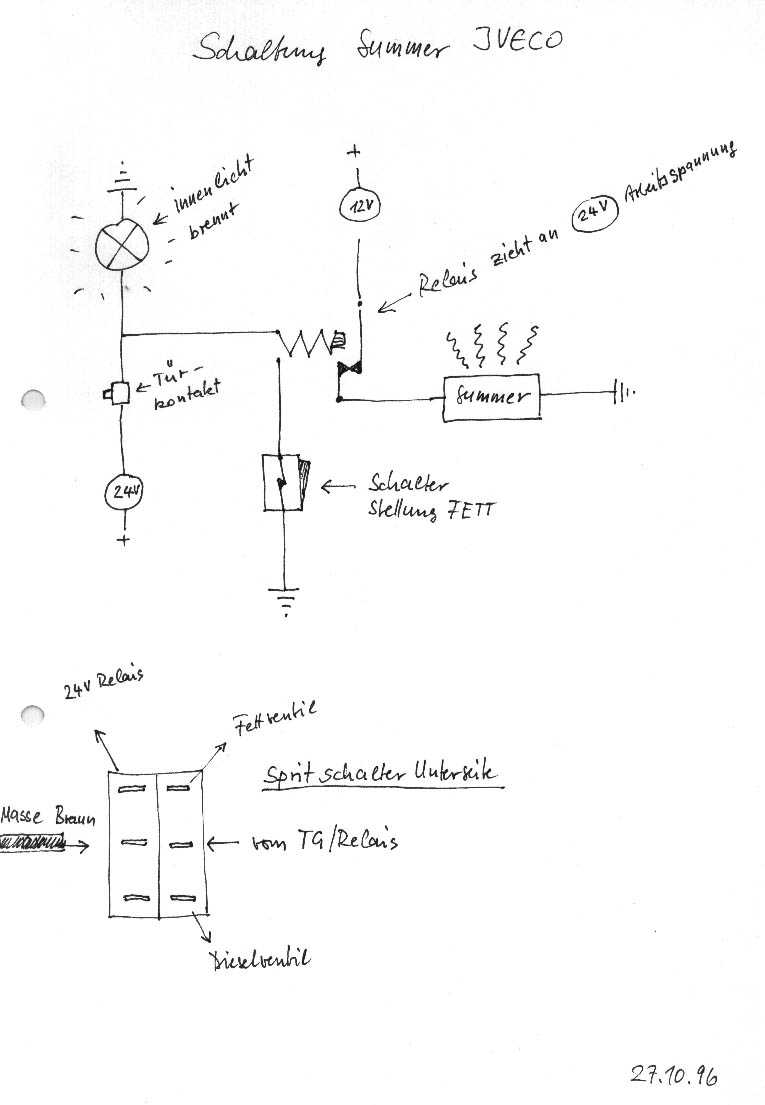 Schaltung Summer IVECO
innenlicht
brennt
+
12V
Relais zieht an 24V Arbeitsspannung
Tür-
kontakt
Summer
24V
+
Schalter
Stellung FETT
24V Relais
Fettventil
Spritschalter Unterseite
Masse Braun
vom TG/Relais
Dieselventil
27.10.96